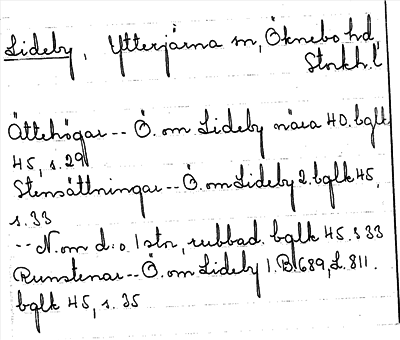 Lideby, Ytterjärna sn, Öknebo hd,
Stockh. l
Ättehögar -- Ö. om Lideby nära 40. bglk
45, s. 29
Stensättningar -- Ö. om Lideby 2. bglk 45,
s. 33
-- N. om d:o 1 str, rubbad. bglk 45. s 33
Runstenar -- Ö. om Lideby 1. B. 689, L. 811.
bglk 45, s. 35